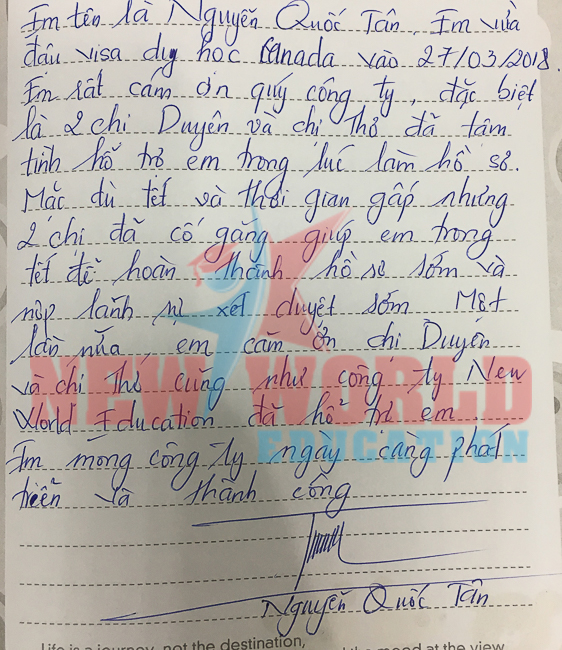 Em tên là Nguyễn Quốc Tân. Em vừa
đậu visa du học Canada vào 27/03/2018.
Em rất cám ơn quý công ty, đặc biệt
là 2 chị Duyên và chị Thơ đã tâm
tình hỗ trợ em trong lúc làm hồ sơ.
Mặc dù tết và thời gian gấp nhưng
2 chị đã cố gắng giúp em trong
tết để hoàn thành hồ sơ sớm và
nộp lãnh sự xét duyệt sớm Một
lần nữa em cảm ơn chị Duyên
và chị Thơ cũng như công ty New
World Education đã hỗ trợ em
Em mong công ty ngày càng phát
triển và thành công
NEW WORLD
EDUCATION
Nguyễn Quốc Tân
Life is a journey, not the destination,
mood at the view